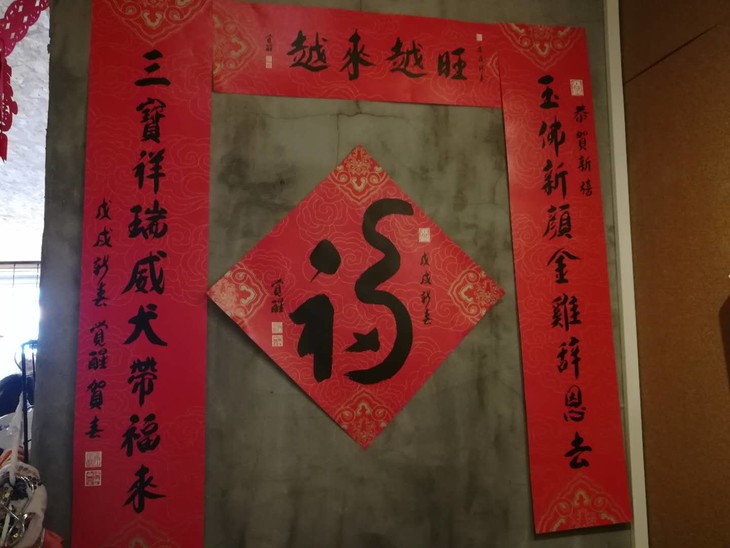 越来越旺
覺醒
恭賀新禧
玉佛新顏金雞辞恩去
三寶祥瑞威犬帶福来
戊戌新春 覺醒賀春
福
戊戌新春
覺醒